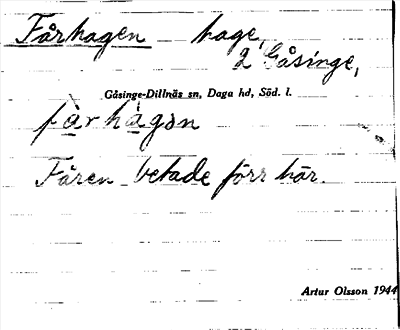 Fårhagen hage,
2 Gåsinge,
Gåsinge-Dillnäs sn, Daga hd, Söd. l.
fàrhàgən
Fåren betade förr här.
Artur Olsson 1944